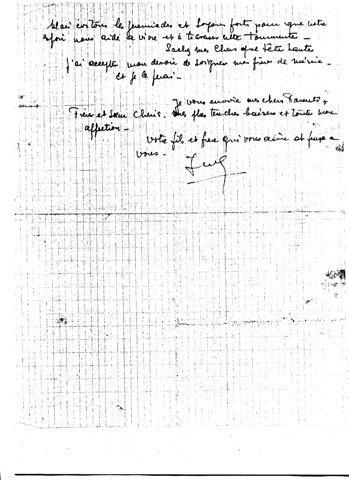 Mais évitons les jérémiades et soyons forts pour que cette
espoir nous aide à vivre et à traverser cette Tourmente -
Sachez mes Chers que tête haute
j'ai accepté mon devoir de soigner mes frères de misère -
Et je le ferai -
Je vous envoie mes chers Parents,
Frère et Sœur Chéris, mes plus tendres baisers et toute mon
affection -
Votre fils et frère qui vous aime et pense à
vous -